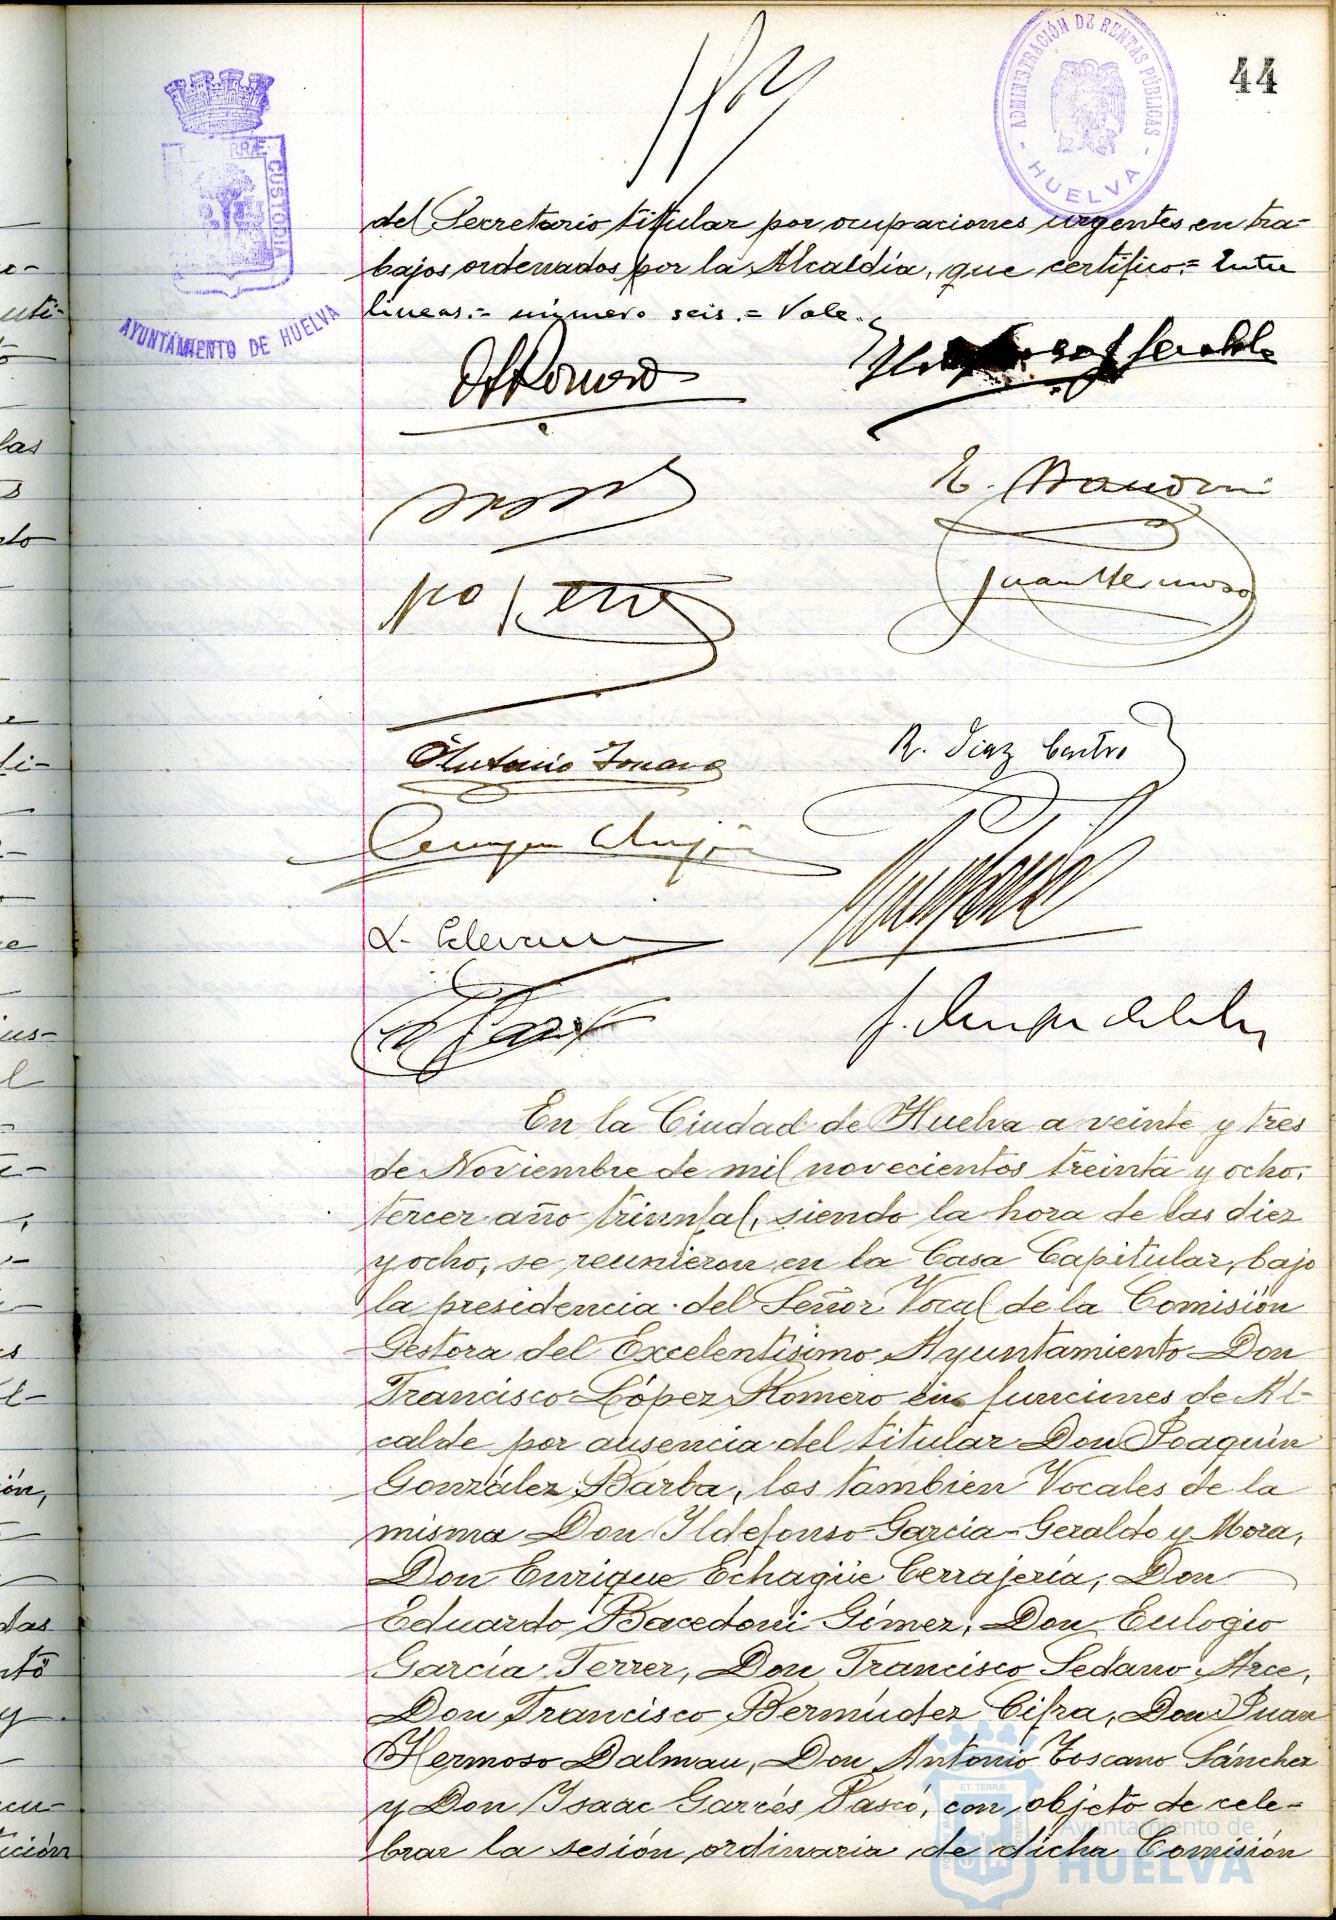 44
ADMINISTRACIÓN DE RENTAS PÚBLICAS
- HUELVA -
RRÆ CUSTODIA
AYUNTAMIENTO DE HUELVA
del Secretario titular por ocupaciones urgentes en tra-
bajos ordenados por la Alcaldía, que certifico.= Entre
lineas.= número seis.= Vale.
Romero
Juan Hermoso
R. Diaz Castro
En la Ciudad de Huelva a veinte y tres
de Noviembre de mil novecientos treinta y ocho,
tercer año triunfal, siendo la hora de las diez
y ocho, se reunieron en la Casa Capitular, bajo
la presidencia del Señor Vocal de la Comisión
Gestora del Excelentísimo Ayuntamiento Don
Francisco López Romero en funciones de Al-
calde por ausencia del titular Don Joaquín
González Barba, los tambien Vocales de la
misma Don Ildefonso García-Geraldo y Mora,
Don Enrique Echagüe Cerrajería, Don
Eduardo Bacedoni Gómez, Don Eulogio
García Ferrer, Don Francisco Sedano Arce,
Don Francisco Bermúdez Cifra, Don Juan
Hermoso Dalmau, Don Antonio Toscano Sánchez
y Don Isaac Garrés Pascó, con objeto de cele-
brar la sesión ordinaria de dicha Comisión
Ayuntamiento de
HUELVA